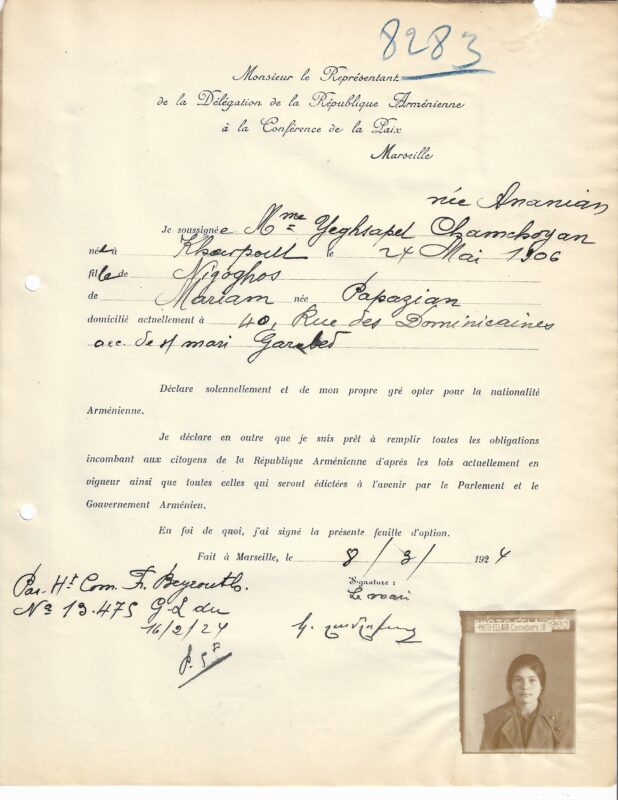 8283
Monsieur le Représentant
de la Délégation de la République Arménienne
à la Conférence de la Paix
Marseille
née Ananian
Je soussignée Mme Yeghsapet Chamchoyan
née à Kharpout le 24 Mai 1906
fille de Nigoghos
de Mariam née Papazian
domicilié actuellement à 40, Rue des Dominicaines
acc. de s/ mari Garabed
Déclare solennellement et de mon propre gré opter pour la nationalité
Arménienne.
Je déclare en outre que je suis prêt à remplir toutes les obligations
incombant aux citoyens de la République Arménienne d'après les lois actuellement en
vigueur ainsi que toutes celles qui seront édictées à l'avenir par le Parlement et le
Gouvernement Arménien.
En foi de quoi, j'ai signé la présente feuille d'option.
Fait à Marseille, le 8/3/1924
Signature :
Le mari
Pas. Ht Com. Fr. Beyrouth.
No 13.475 G-L du
16/2/24
PHOTO ECLAIR Cannebière